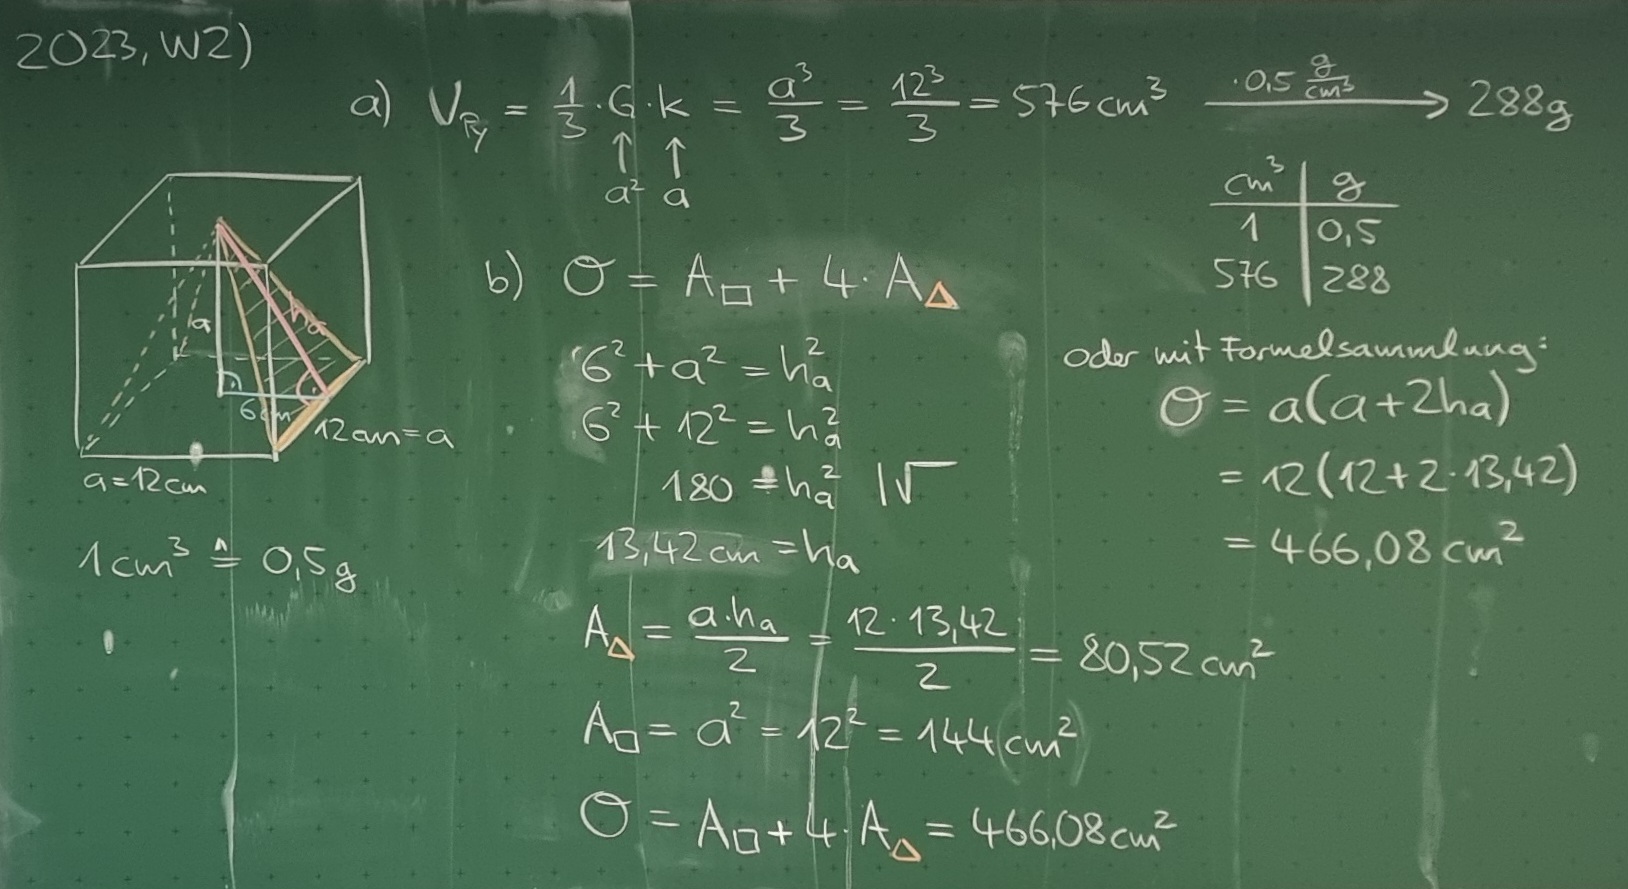 2023, W2)
a) V_Py = 1/3 · G · k = a³/3 = 12³/3 = 576 cm³ —· 0,5 g/cm³→ 288g
↑ ↑
a² a
cm³ | g
1 | 0,5
576 | 288
a
ha
6cm
12cm = a
a = 12cm
1cm³ ≙ 0,5g
b) O = A□ + 4 · A△
6² + a² = ha²
6² + 12² = ha²
180 = ha² |√
13,42 cm = ha
A△ = a·ha/2 = 12 · 13,42/2 = 80,52 cm²
A□ = a² = 12² = 144 (cm²)
O = A□ + 4 · A△ = 466,08 cm²
oder mit Formelsammlung:
O = a(a+2ha)
= 12(12+2·13,42)
= 466,08 cm²